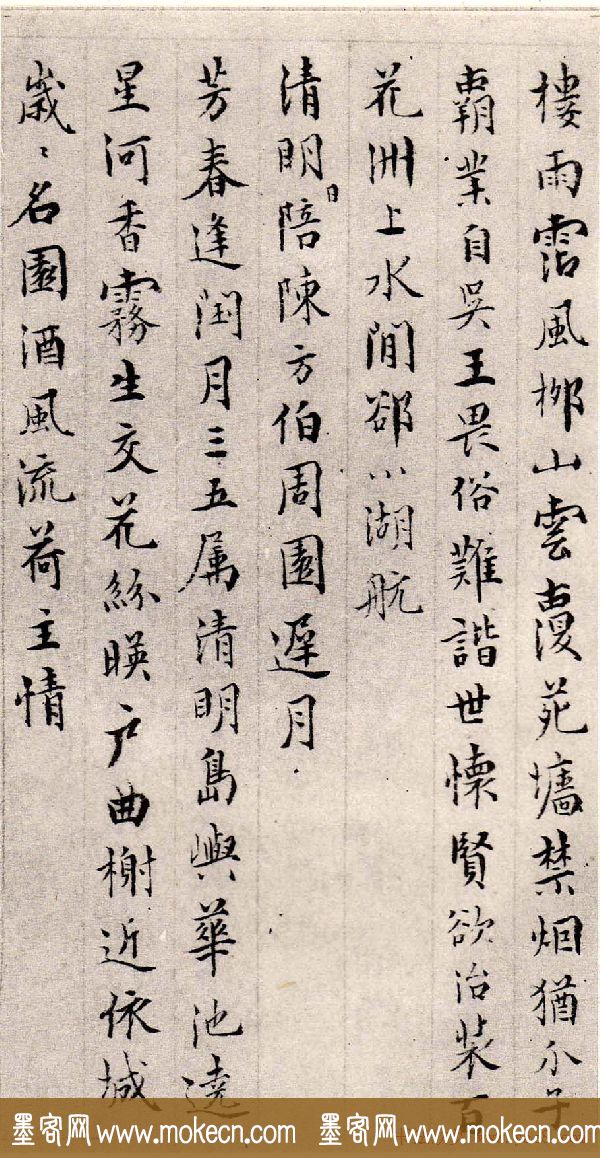 樓雨霑風栁山雲覆苑墻禁烟猶介子
霸業自吳王畏俗難諧世懷賢欲治装百
花洲上水閒郤小湖航
清明日陪陳方伯周園遲月
芳春逢閏月三五属清明島嶼華池遶
星河香霧生交花絲暎户曲榭近依城
歲〻名園酒風流荷主情
墨客网 www.mokecn.com 墨客网 www.mokecn.com